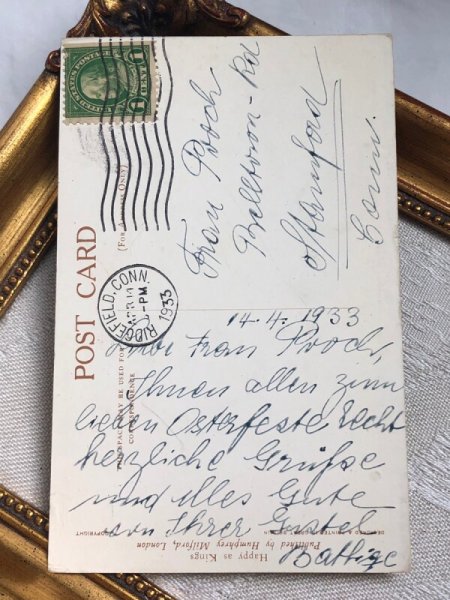 UNITED STATES POSTAGE
1 CENT 1
RIDGEFIELD, CONN.
APR 14
PM
1933
POST CARD
(FOR ADDRESS ONLY)
THIS SPACE MAY BE USED FOR
CORRESPONDENCE
Frau Pooch
Belltown-Rd
Stamford
Conn.
14.4.1933
Liebe Frau Pooch,
Ihnen allen zum
lieben Osterfeste recht
herzliche Grüße
und alles Gute
von Ihrer Gustel
Happy as Kings
Published by Humphrey Milford, London
COPYRIGHT